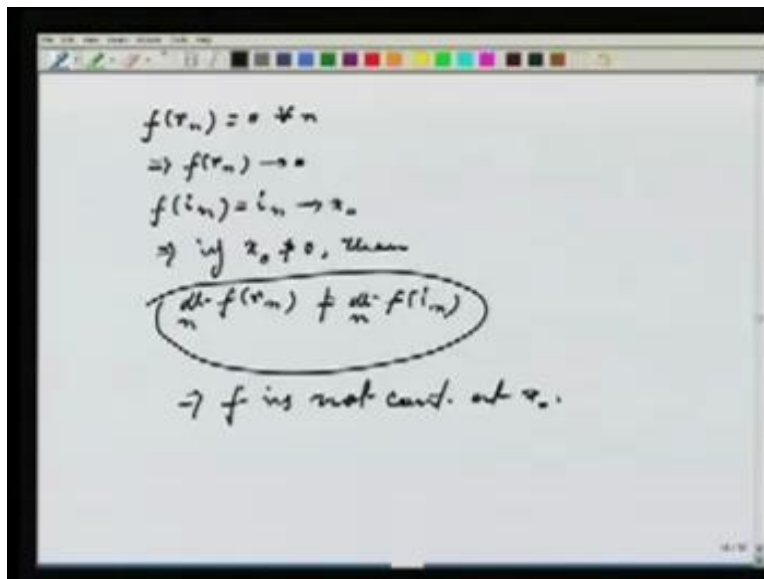 f(r_n) = 0 ∀ n
⇒ f(r_n) → 0
f(i_n) = i_n → x_0
⇒ if x_0 ≠ 0, then
lt_n f(r_n) ≠ lt_n f(i_n)
⇒ f is not cont. at x_0.